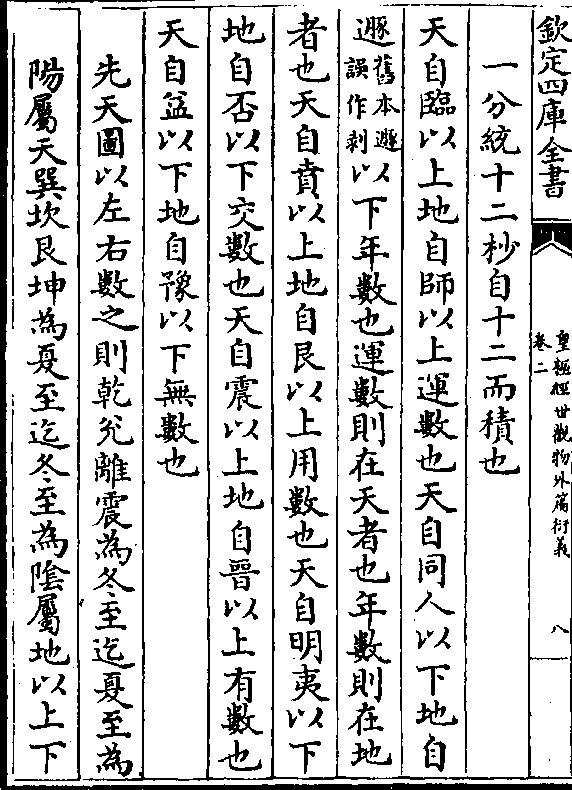 欽定四庫全書
皇極經世觀物外篇衍義
卷二
八
一分統十二秒自十二而積也
天自臨以上地自師以上運數也天自同人以下地自
遯舊本遯誤作剥以下年數也運數則在天者也年數則在地
者也天自賁以上地自艮以上用數也天自明夷以下
地自否以下交數也天自震以上地自晉以上有數也
天自益以下地自豫以下無數也
先天圖以左右數之則乾兊離震為冬至迄夏至為
陽屬天巽坎艮坤為夏至迄冬至為陰屬地以上下